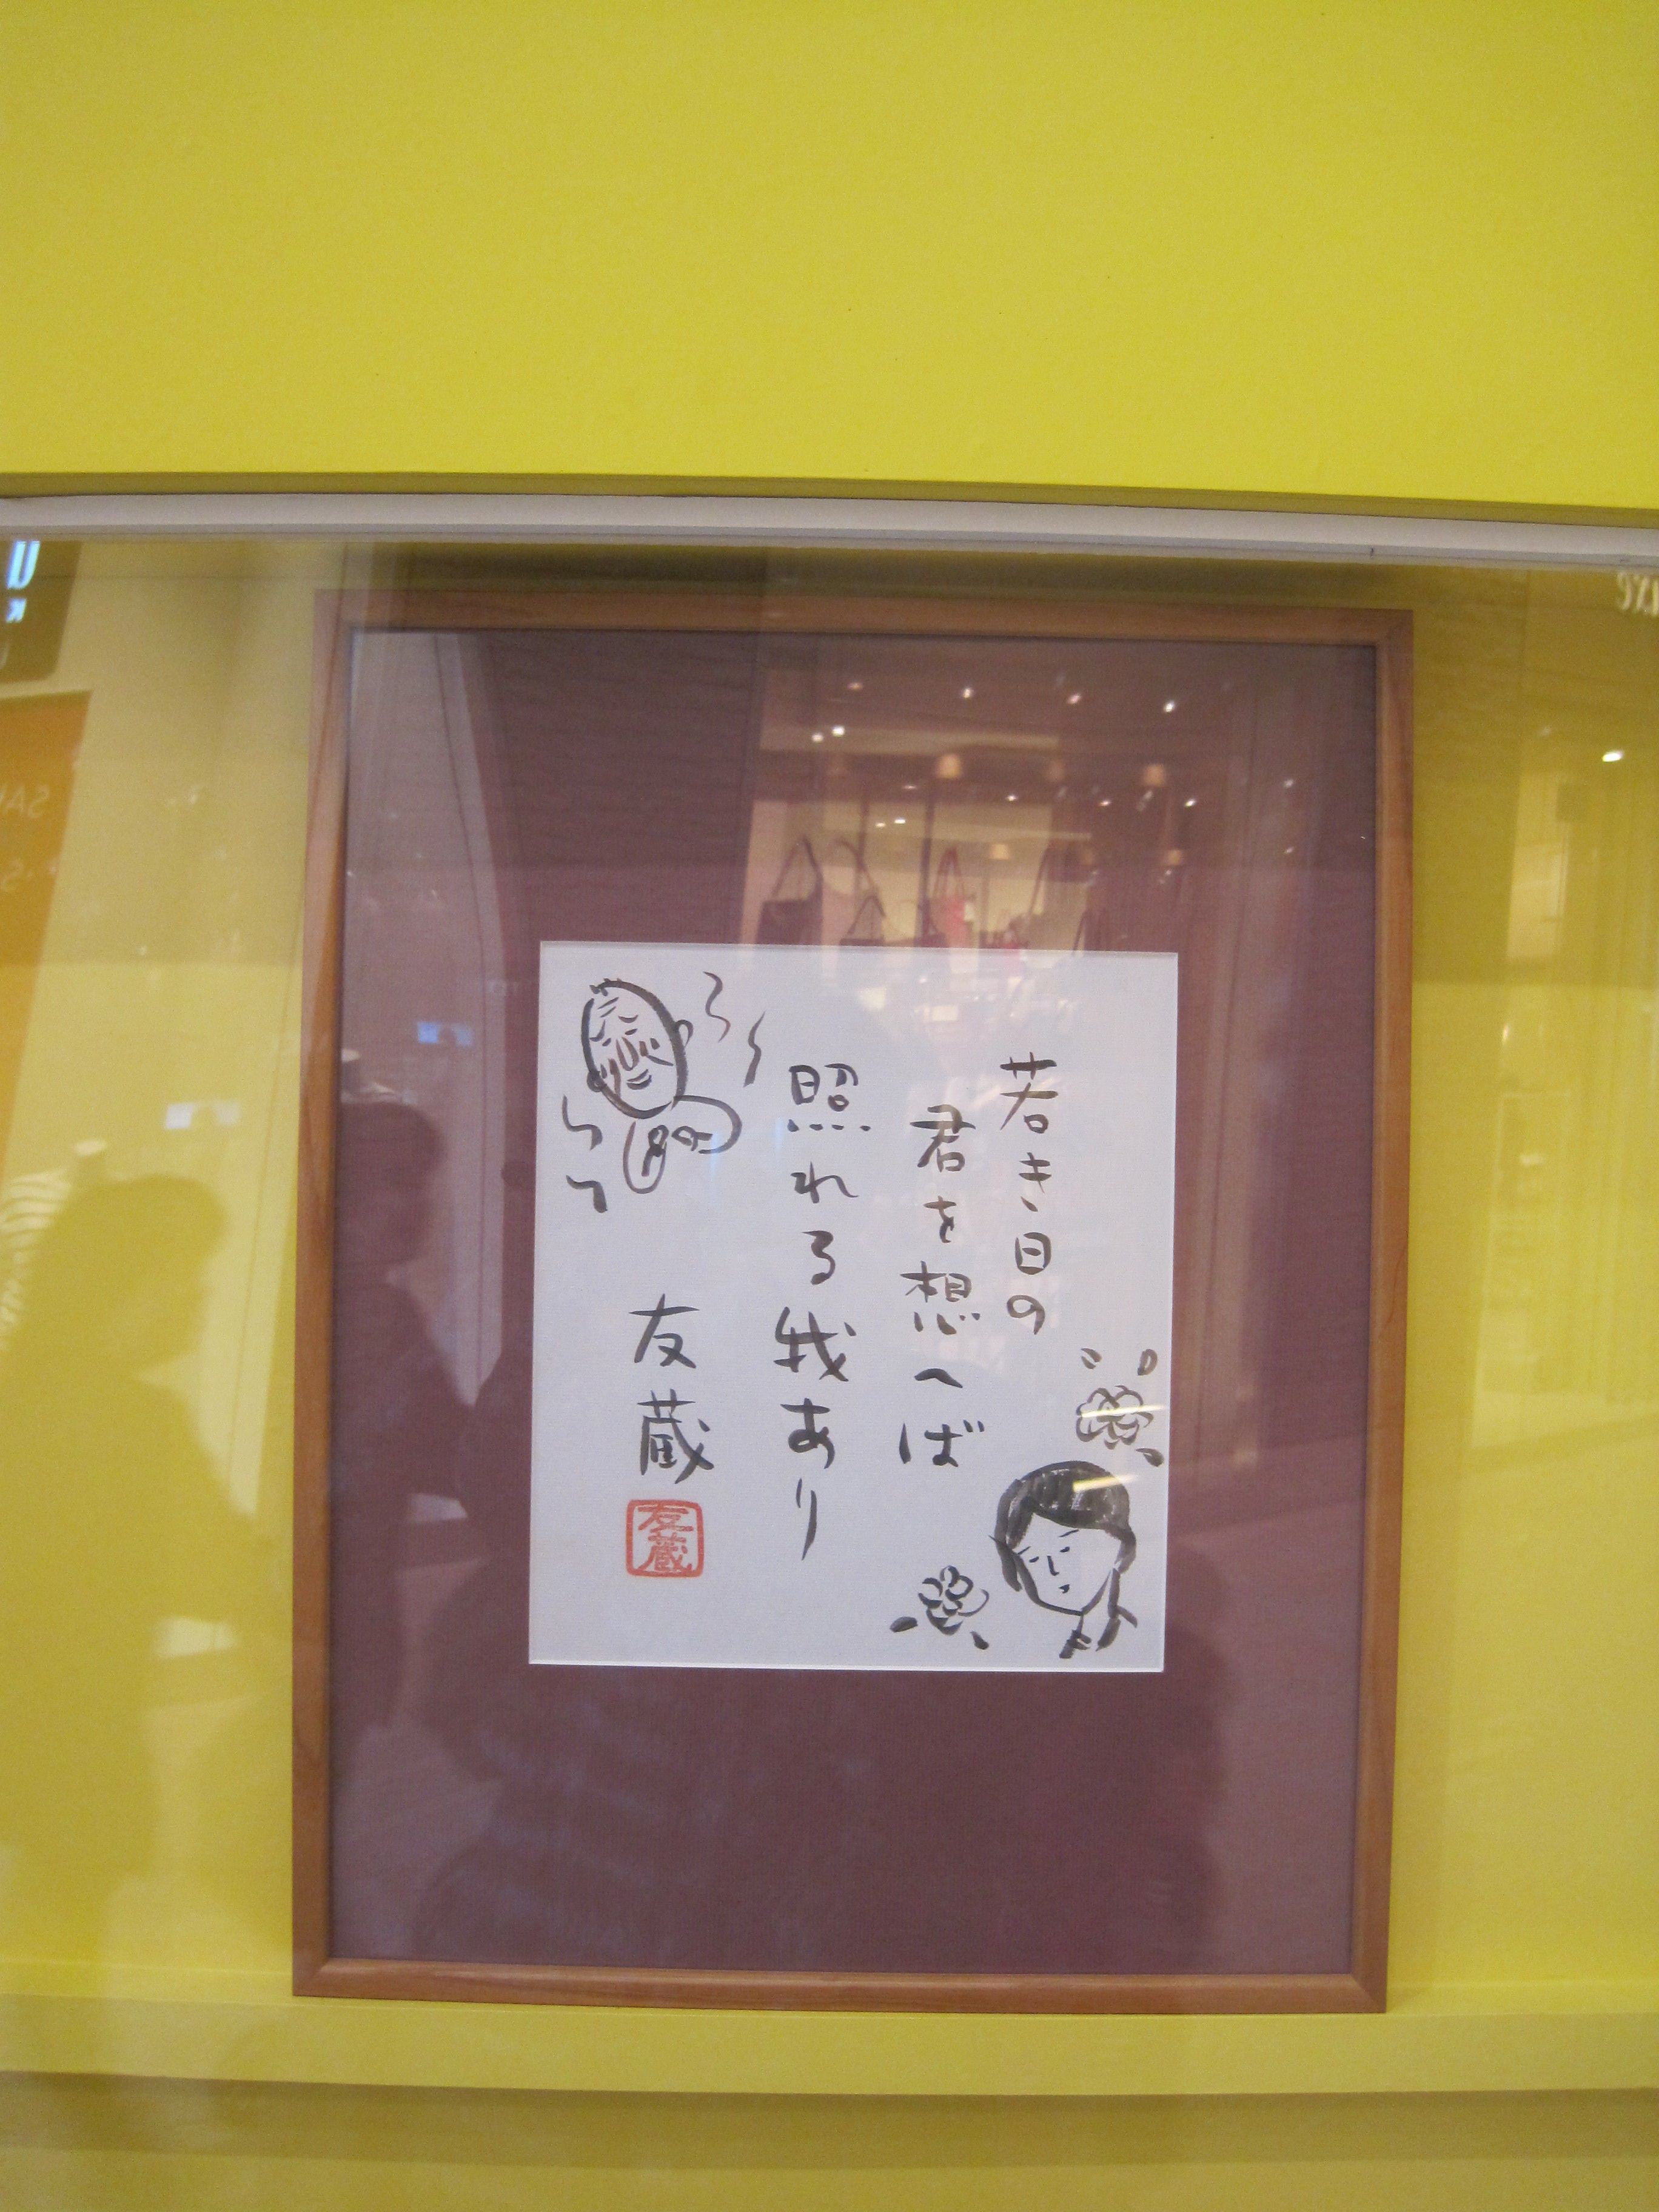 若き日の
君を想へば
照れる我あり
友蔵
友蔵